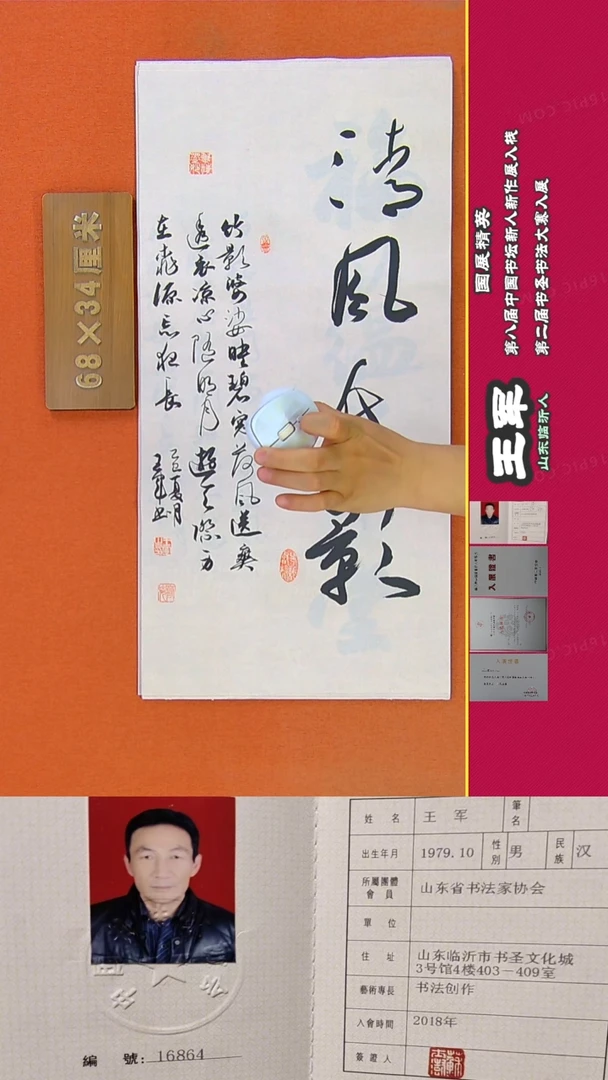 清风竹影
竹影婆娑映碧窗夜风送爽
透衣凉心随明月遊天际方
在桃源忘夜长
乙巳夏月
王军书
68×34厘米
国展精英
第八届中国书坛新人新作展入展
第二届书圣书法大赛入展
王军
山东临沂人
入展证书
編 號：16864
姓 名 王 军 筆名
出生年月 1979.10 性別 男 民族 汉
所屬團體會員 山东省书法家协会
單 位
住 址 山东临沂市书圣文化城
3号馆4楼403－409室
藝術專長 书法创作
入會時間 2018年
簽證人